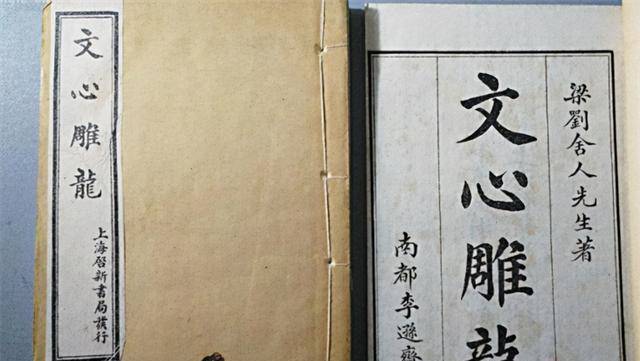 文心雕龍
上海啓新書局發行
梁劉舍人先生著
文心雕龍
南都李遜齋